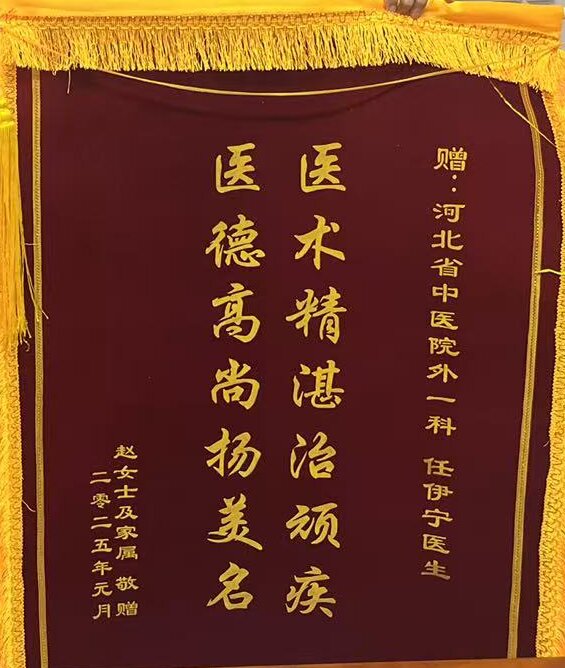 赠：河北省中医院外一科 任伊宁医生
医术精湛治顽疾
医德高尚扬美名
赵女士及家属 敬赠
二零二五年元月